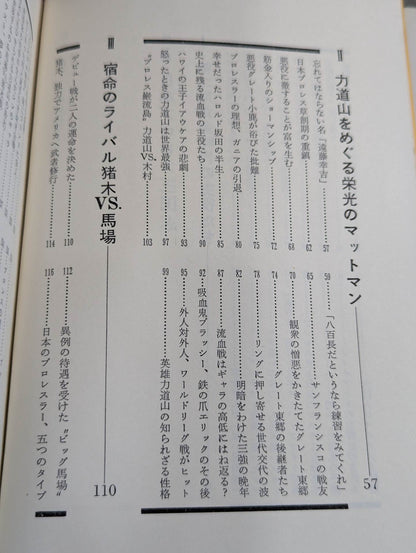 Ⅱ 力道山をめぐる栄光のマットマン 57
忘れてはならない名「遠藤幸吉」 57
日本プロレス草創期の重鎮 62
悪役に徹することが富を生む 68
筋金入りのショーマンシップ 72
悪役グレート小鹿が浴びた批難 75
プロレスラーの理想、ガニアの引退 80
幸せだったハロルド坂田の半生 85
史上に残る流血戦の主役たち 90
ハワイの王子イアウケアの悲劇 93
怒ったときの力道山は世界最強 97
“プロレス巌流島” 力道山VS.木村 103
59 「八百長だというなら練習をみてくれ」
65 サンフランシスコの戦友
70 観衆の憎悪をかきたてたグレート東郷
74 グレート東郷の後継者たち
78 リングに押し寄せる世代交代の波
82 明暗をわけた三強の晩年
87 流血戦はギャラの高低にはね返る?
92 吸血鬼ブラッシー、鉄の爪エリックのその後
95 外人対外人、ワールドリーグ戦がヒット
99 英雄力道山の知られざる性格
Ⅲ 宿命のライバル猪木VS.馬場 110
デビュー戦が二人の運命を決めた 110
猪木、独力でアメリカへ武者修行 114
112 異例の待遇を受けた “ビッグ馬場”
116 日本のプロレスラー、五つのタイプ